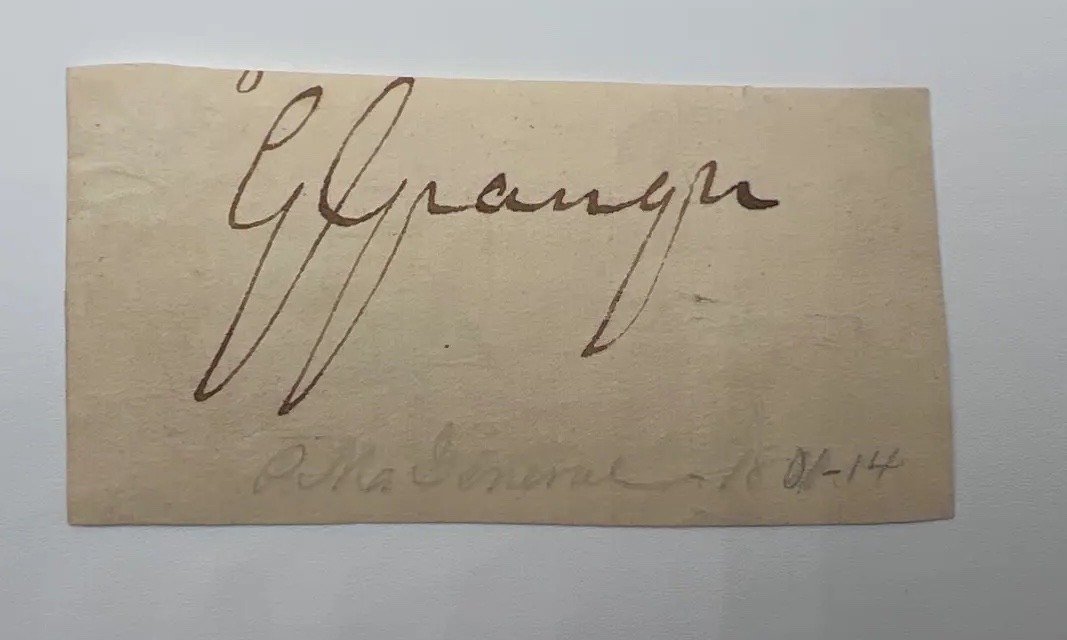 G Granger
P. M. General - 1801-14